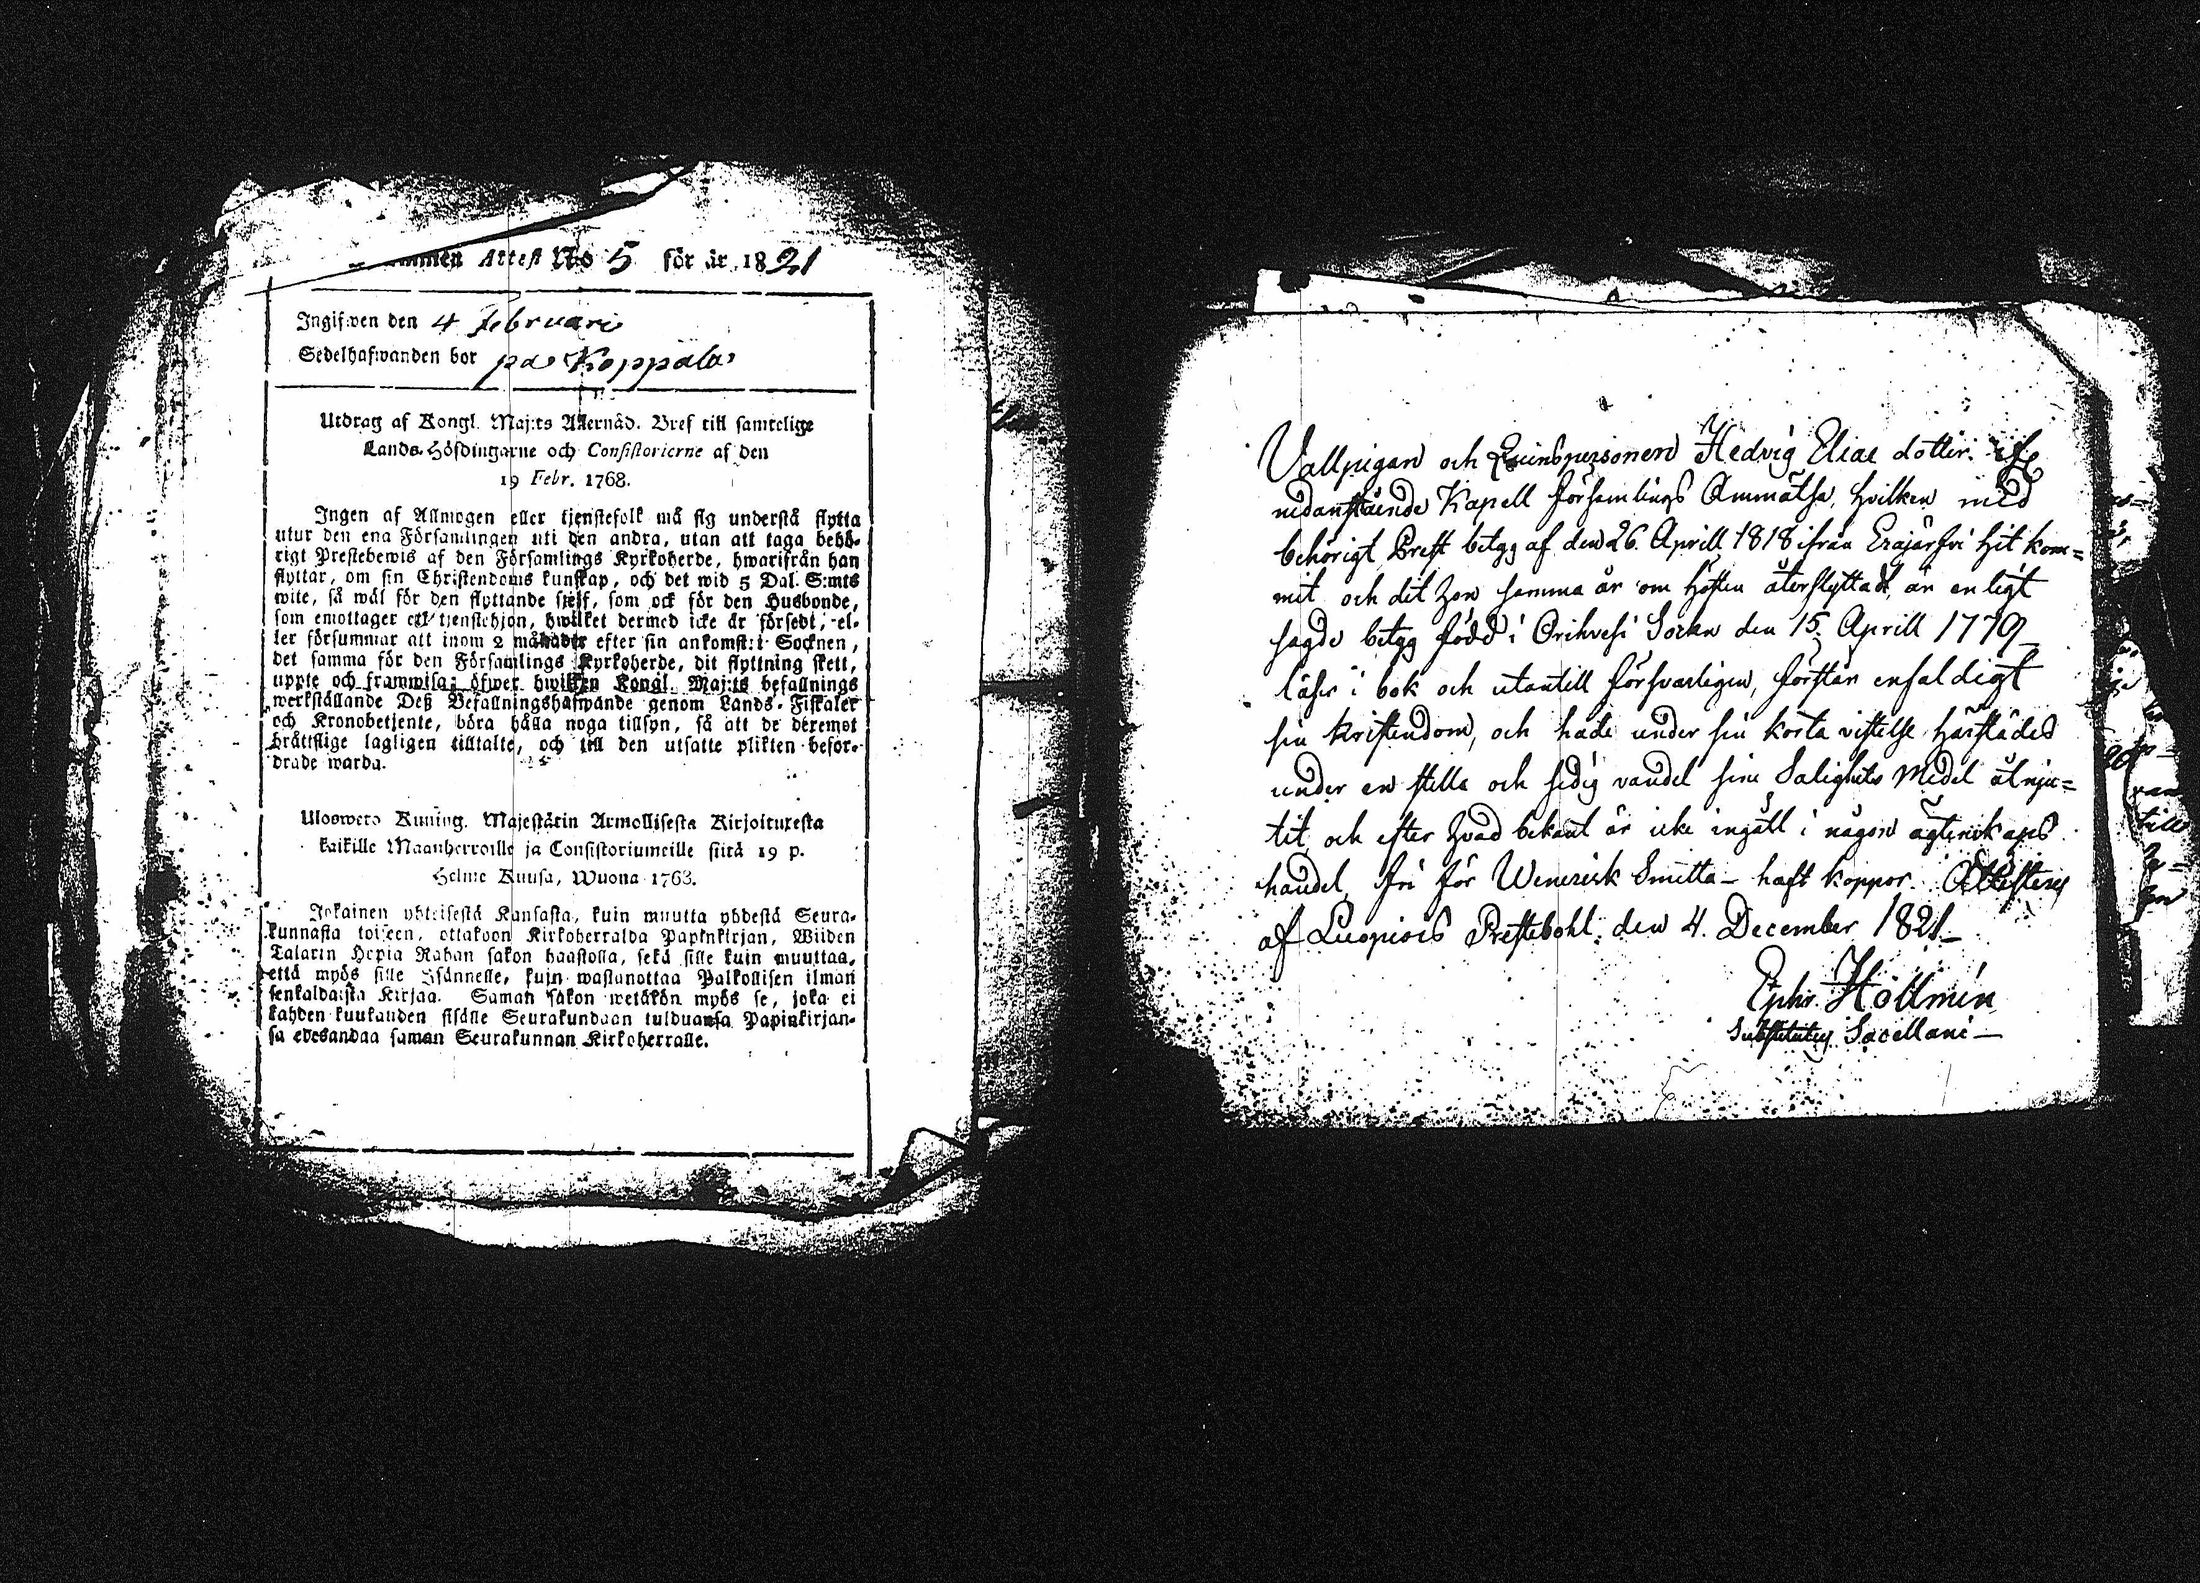 mmen Attest No 5 för år 1821
Ingifwen den 4 februari
Sedelhafwanden bor på Koppala
Utdrag af Kongl. Maj:ts Allernåd. Bref till samtelige
Lands-Höfdingarne och Consistorierne af den
19 Febr. 1768.
Ingen af Allmogen eller tjenstefolk må sig understå flytta
utur den ena Församlingen uti den andra, utan att taga behö-
rigt Prestebewis af den Församlings Kyrkoherde, hwarifrån han
flyttar, om sin Christendoms kunskap, och det wid 5 Dal. S:mts
wite, så wäl för den flyttande sjelf, som ock för den Husbonde,
som emottager ett tjenstehjon, hwilket dermed icke är försedt, el-
ler försummar att inom 2 månader efter sin ankomst i Socknen,
det samma för den Församlings Kyrkoherde, dit flyttning skett,
uppte och frammisa; öfwer hwilken Kongl. Maj:ts befallnings
werkställande Deß Befallningshafwande genom Lands-Fiskaler
och Kronobetjente, böra hålla noga tillsyn, så att de deremot
bråttslige lagligen tilltalte, och till den utsatte plikten befor-
drade warda.
Uloswero Kuning. Majestätin Armollisesta Kirjoituxesta
kaikille Maanherroille ja Consistoriumeille siitä 19 p.
Helme Kuusa, Wuona 1768.
Jokainen yhteisestä Kansasta, kuin muutta yhdestä Seura-
kunnasta toiseen, ottakoon Kirkoherralda Papinkirjan, Wiiden
Talarin Hopia Rahan sakon haastolla, sekä sille kuin muuttaa,
että myös sille Isännelle, kuin wastanottaa Palkollisen ilman
senkaldaista Kirjaa. Saman sakon wetäkön myös se, joka ei
kahden kuukauden sisälle Seurakundaan tulduansa Papinkirjan-
sa edesandaa saman Seurakunnan Kirkoherralle.
Vallpigan och Qvinspersonen Hedvig Eliae dotter
nedanstående Kapell församlings Ammätsa, hvilken med
behörigt Prest betyg af den 26. Aprill 1818 ifrån Eräjärfvi hit kom-
mit och dit hon samma år om hösten återflyttat, är enligt
sagde betyg född i Orihvesi Sockn den 15. Aprill 1779
läser i bok och utantill försvarligen, förstår enfaldigt
sin kristendom, och hade under sin korta vistelse härstädes
under en stilla och sedig vandel sine Salighets Medel åtnju-
tit, och efter hvad bekant är icke ingått i någon ägtenskaps
handel, fri för Wenerisk Smitta - haft koppor. Attesteras
af Luopiois Prestebohl. den 4. December 1821
Ephr. Hollmén
Substitutus Sacellani